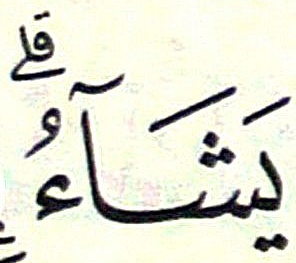 يَشَآءُ ۗ